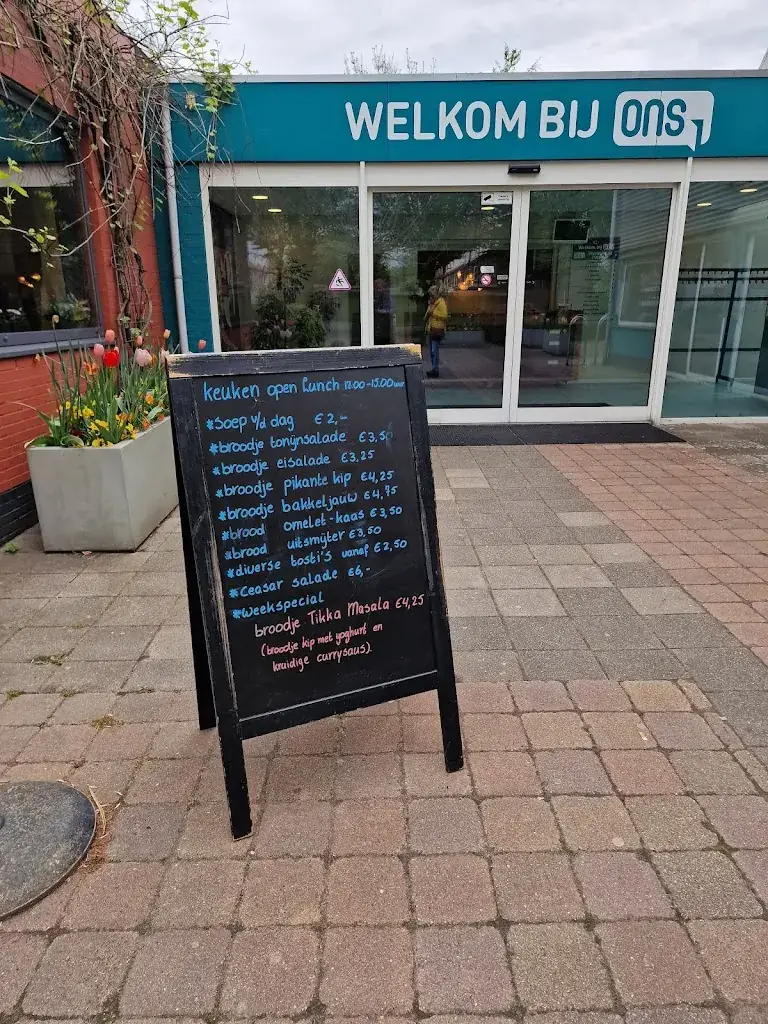 WELKOM BIJ ons
keuken open Lunch 12.00-15.00uur
*Soep v/d dag €2,-
*broodje tonijnsalade €3,50
*broodje eisalade €3,25
*broodje pikante kip €4,25
*broodje bakkeljauw €4,75
*brood omelet-kaas €3,50
*brood uitsmijter €3,50
*diverse tosti's vanaf €2,50
*Ceasar salade €6,-
*weekspecial
broodje Tikka Masala €4,25
(broodje kip met yoghurt en
kruidige currysaus).